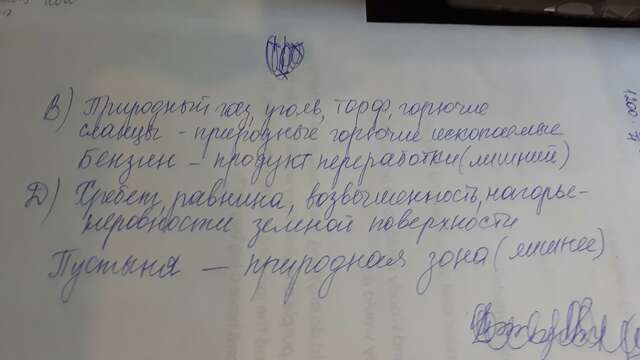 В) Природный газ, уголь, торф, горючие
сланцы - природные горючие ископаемые
Бензин - продукт переработки (лишний)
Д) Хребет, равнина, возвышенность, нагорье-
неровности земной поверхности
Пустыня - природная зона (лишнее)